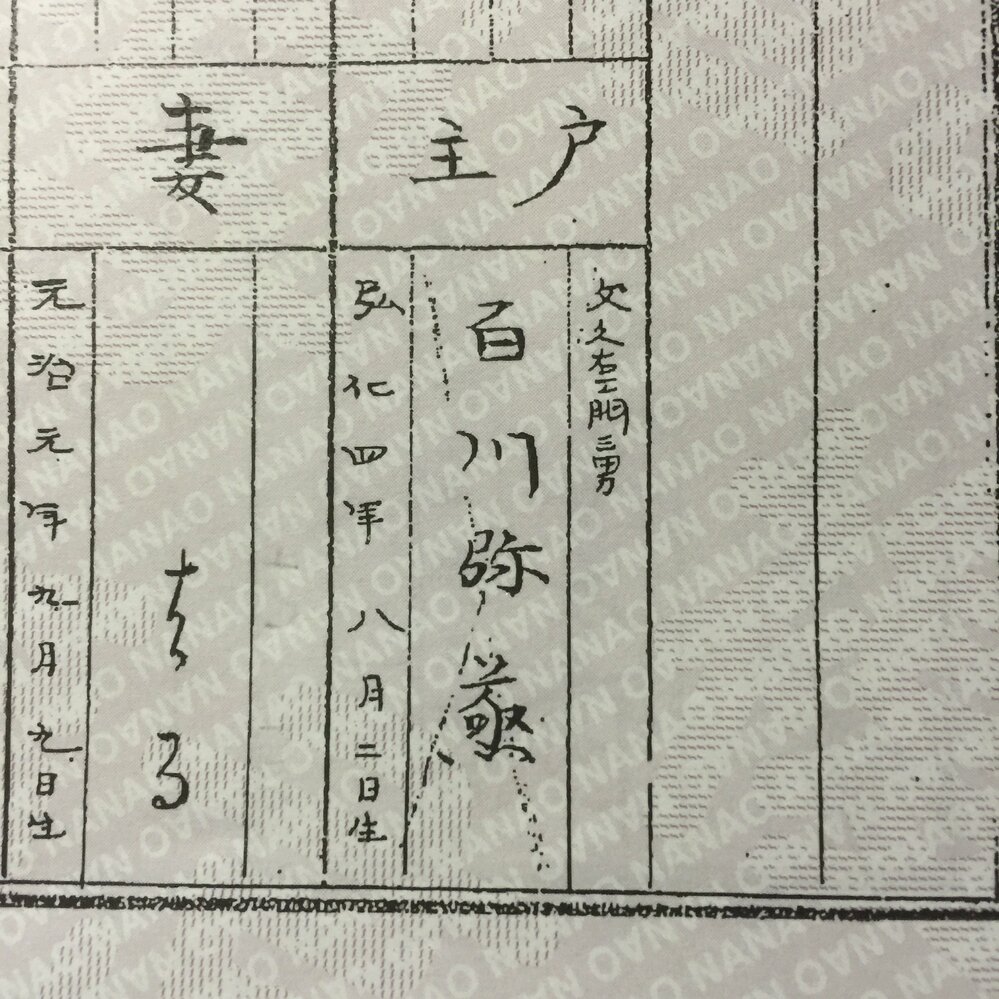 戸主
文久右エ門三男
百川弥
弘化四年八月二日生
妻
元治元年九月九日生
NANAO